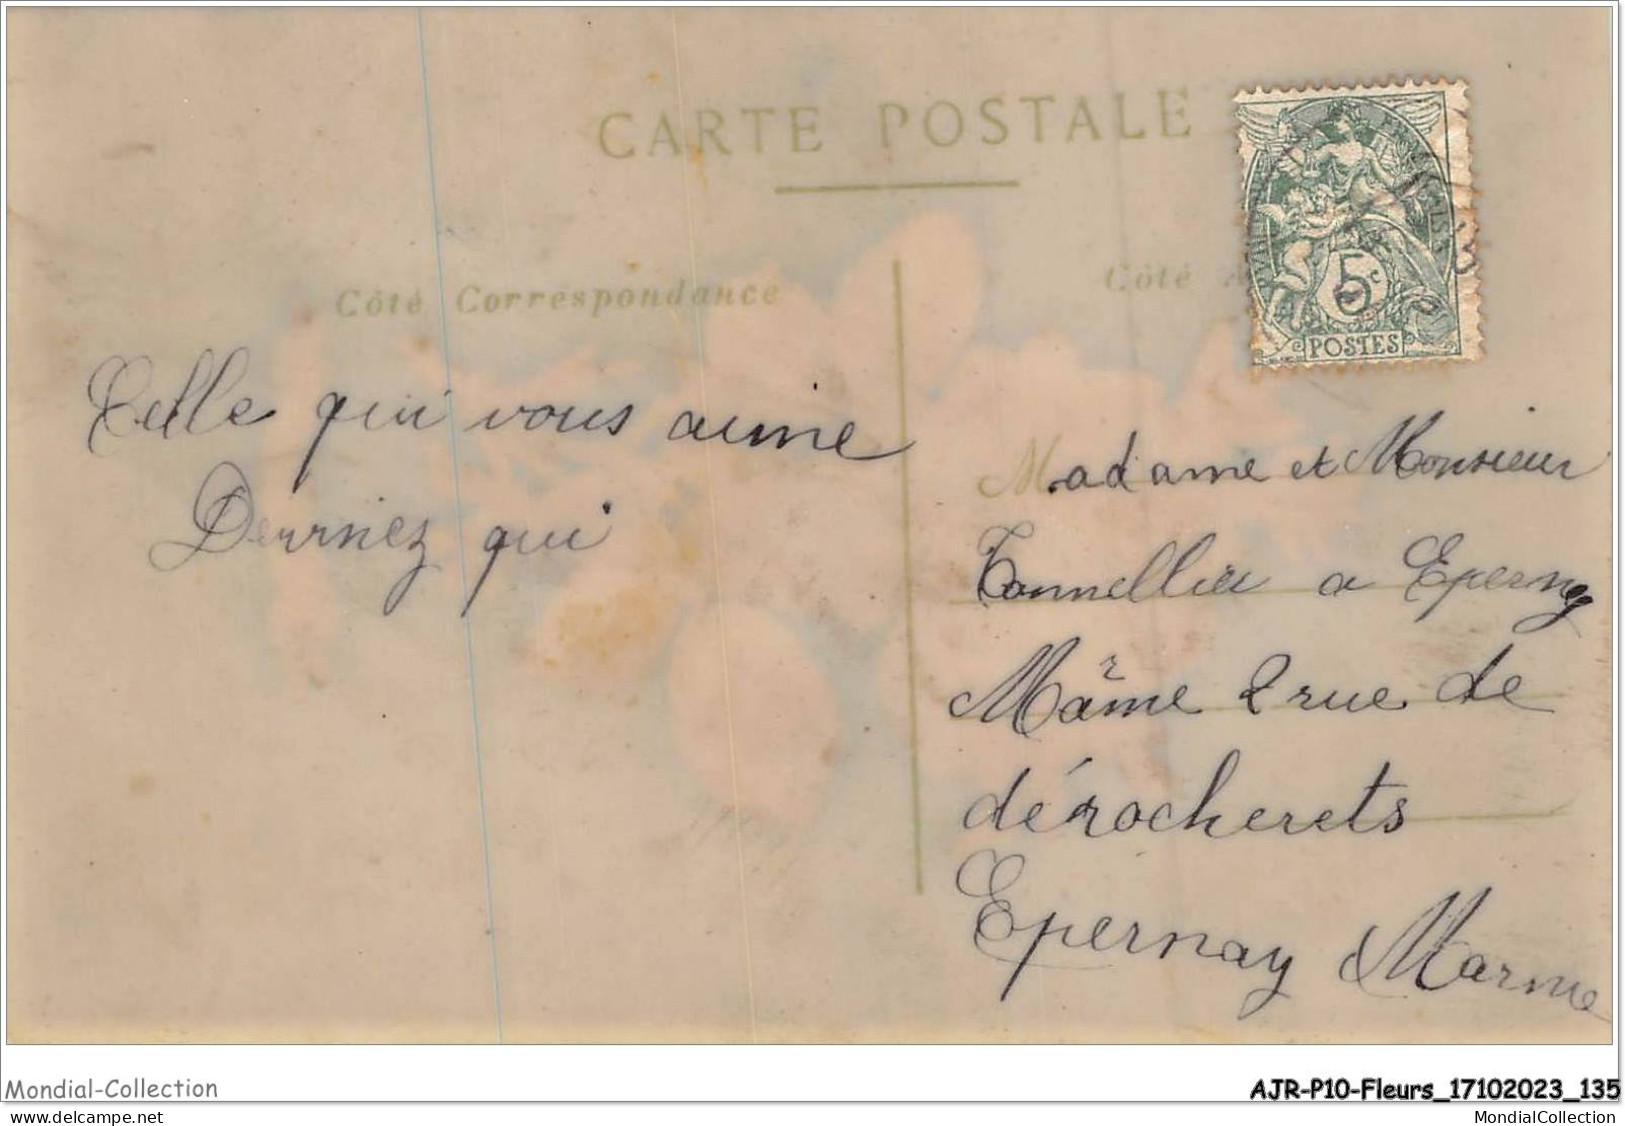 CARTE POSTALE
Côté Correspondance
Côté
5c
POSTES
Celle qui vous aime
Devrnez qui
Madame et Monsieur
Tonnellier a Epernay
Marne 2 rue de
dérocherets
Epernay Marne
Mondial-Collection
AJR-P10-Fleurs_17102023_135
delcampe.net
MondialCollection